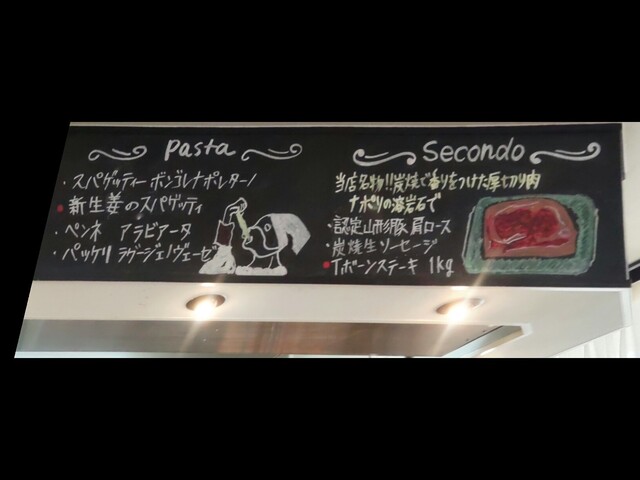 Pasta
・スパゲッティーボンゴレナポレターノ
・新生姜のスパゲッティ
・ペンネ アラビアータ
・パッケリ ラグージェノヴェーゼ
Secondo
当店名物!!炭焼で香りをつけた厚切り肉
ナポリの溶岩石で
・認定山形豚 肩ロース
・炭焼生ソーセージ
・Tボーンステーキ 1kg